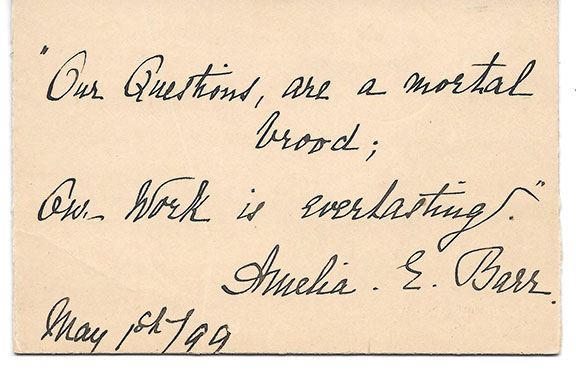 "Our Questions, are a mortal
brood;
Our Work is everlasting."
Amelia . E. Barr.
May 1st/99